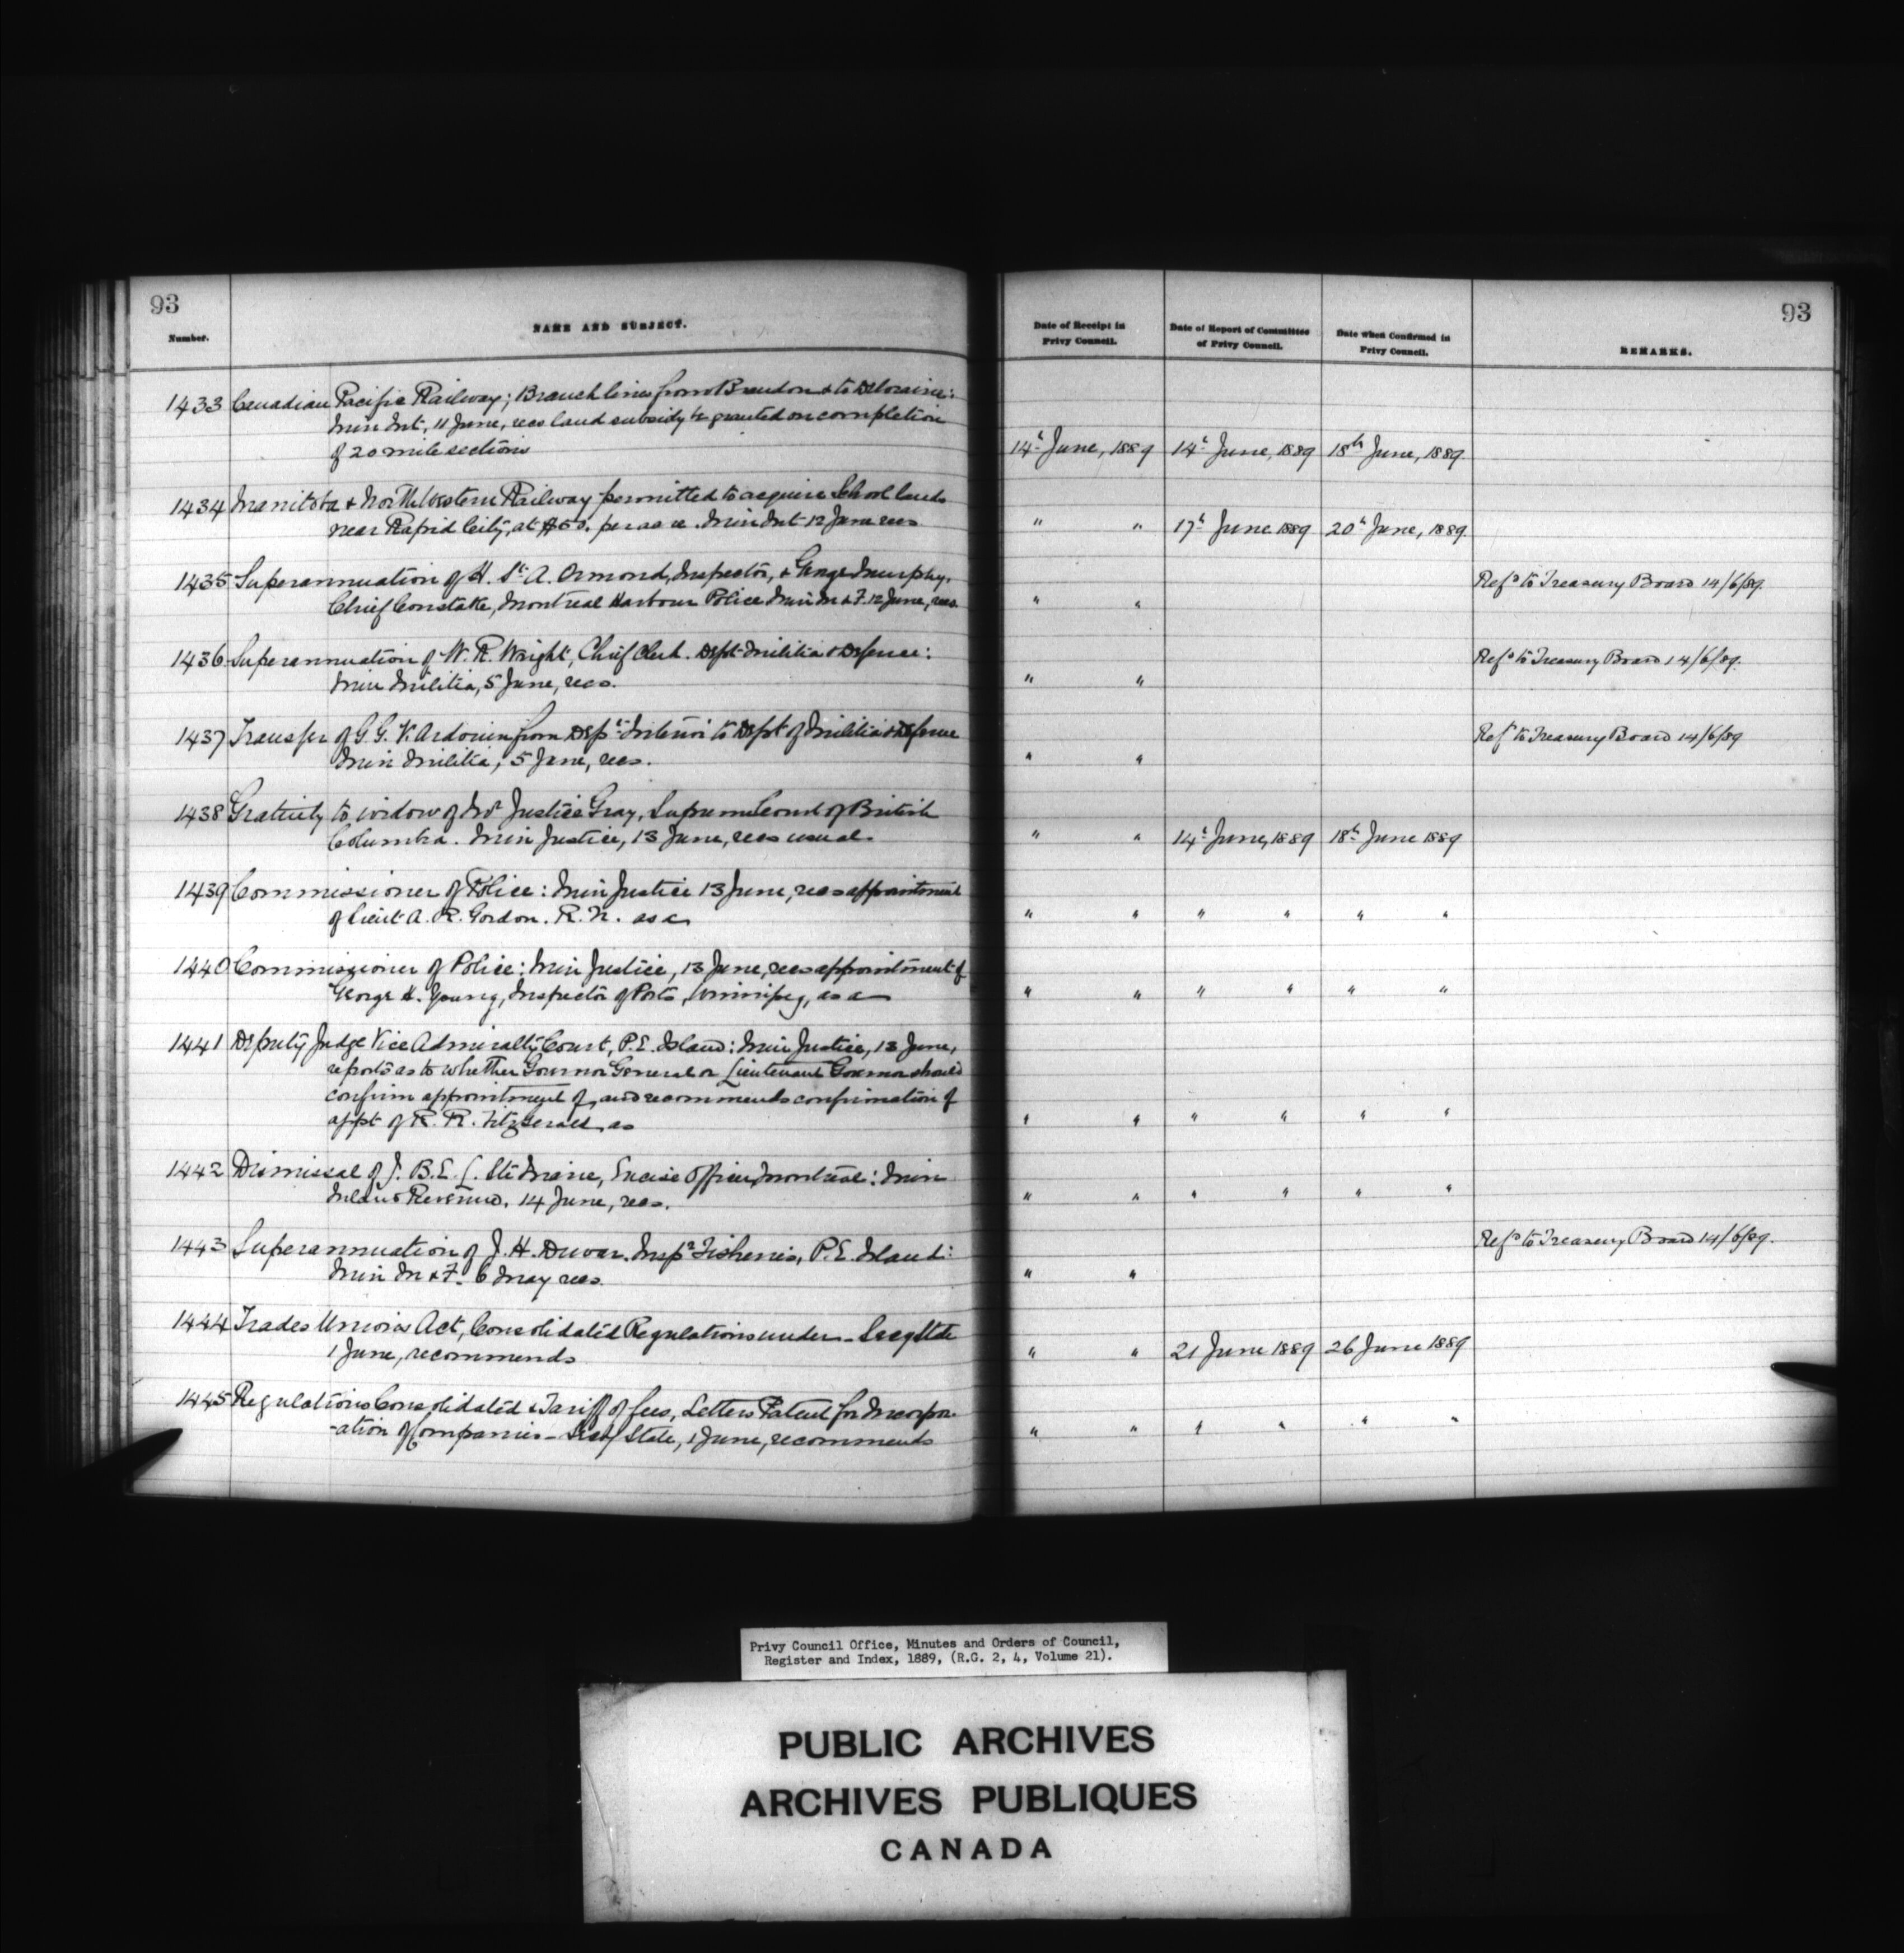 93
Number.
NAME AND SUBJECT.
Date of Receipt in
Privy Council.
Date of Report of Committee
of Privy Council.
Date when Confirmed in
Privy Council.
REMARKS.
93
1433 Canadian Pacific Railway; Branch lines from Brandon & to Deloraine:
Min Int, 11 June, recs land subsidy be granted on completion
of 20 mile sections
14th June, 1889 14th June, 1889 18th June, 1889.
1434 Manitoba & North Western Railway permitted to acquire School lands
near Rapid City, at per acre. Min Int 12 June recs
" " 17th June 1889 20th June, 1889.
1435 Superannuation of H. St. A. Ormond, Inspector, & George Murphy,
Chief Constable, Montreal Harbour Police Min M & F. 12 June, recs.
" " Refd to Treasury Board 14/6/89.
1436 Superannuation of W. R. Wright, Chief Clerk. Dept Militia & Defence:
Min Militia, 5 June, recs.
" " Refd to Treasury Board 14/6/89.
1437 Transfer of G. G. V. Ardouin from Dept Interior to Dept of Militia & Defence
Min Militia, 5 June, recs.
" " Refd to Treasury Board 14/6/89
1438 Gratuity to widow of Mr Justice Gray, Supreme Court of British
Columbia. Min Justice, 13 June, recs usual
" " 14th June, 1889 18th June 1889
1439 Commissioner of Police: Min Justice 13 June, recs appointment
of Lieut A. R. Gordon. R. N. as a
" " " " " "
1440 Commissioner of Police: Min Justice, 13 June, recs appointment of
George H. Young, Inspector of Ports, Winnipeg, as a
" " " " " "
1441 Deputy Judge Vice Admiralty Court, P.E. Island: Min Justice, 13 June,
reports as to whether Governor General or Lieutenant Governor should
confirm appointment of, and recommends confirmation of
appt of R. R. Fitzgerald, as
" " " " " "
1442 Dismissal of J. B. E. L. Ste Marie, Excise Officer, Montreal: Min
Inland Revenue, 14 June, recs.
" " " " " "
1443 Superannuation of J. H. Duvar. Inspr Fisheries, P.E. Island:
Min M & F. 6 May recs.
" " Refd to Treasury Board 14/6/89.
1444 Trades Unions Act, Consolidated Regulations under - Secy State
1 June, recommends
" " 21 June 1889 26 June 1889
1445 Regulations Consolidated & Tariff of fees, Letters Patent for Incorpor-
-ation of Companies - Secy State, 1 June, recommends
" " " " " "
Privy Council Office, Minutes and Orders of Council,
Register and Index, 1889, (R.G. 2, 4, Volume 21).
PUBLIC ARCHIVES
ARCHIVES PUBLIQUES
CANADA